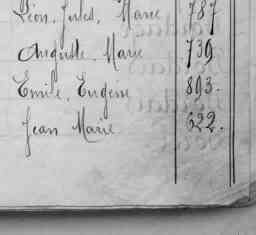 Léon, Jules, Marie 787
Auguste, Marie 739
Emile, Eugène 893.
Jean Marie 622.